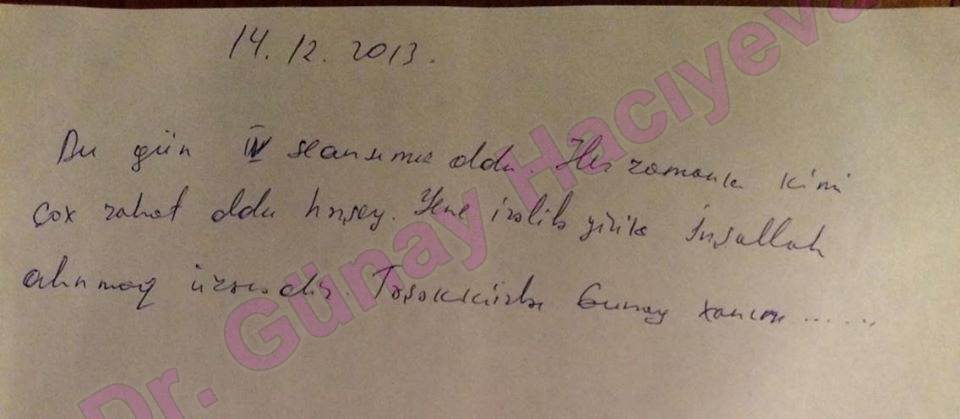 14.12.2013.
Bu gün IV seansımız oldu. Her zamankı kimi
çox rahat oldu hərşey. Yene irəlileyirik İnşallah
alınmaq üzrədir Təşəkkürlər Gunay xanım ......
Dr. Günay Hacıyeva